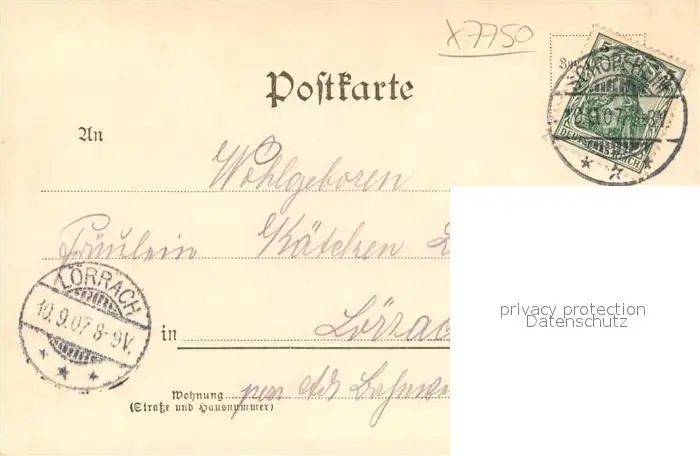 x7750
Postkarte
5
SCHOPFHEIM
10.9.07
DEUTSCHES REICH
An
Wohlgeboren
Fräulein Kätchen
LÖRRACH
10.9.07 8-9V.
in Lörrac
Wohnung
(Straße und Hausnummer)
privacy protection
Datenschutz